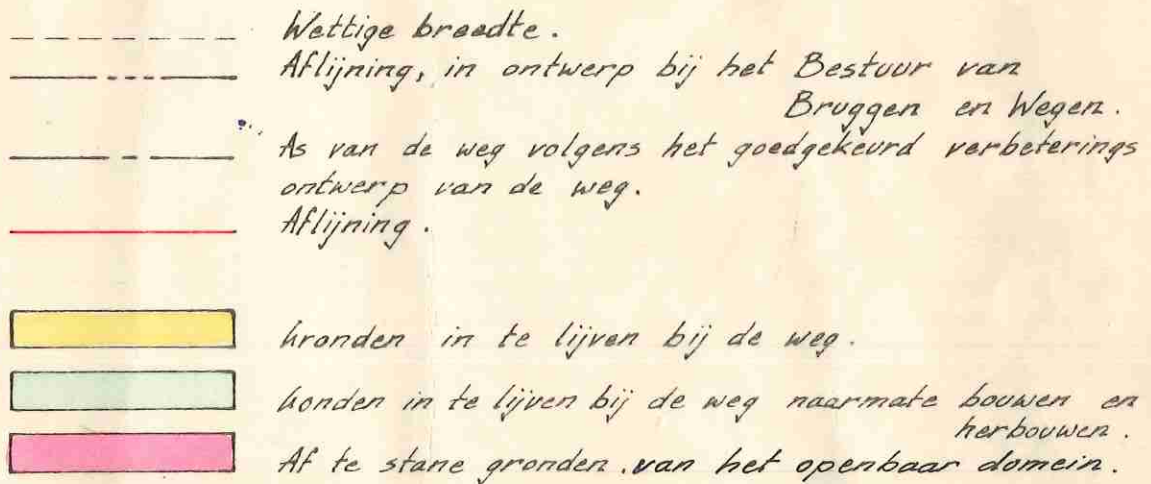 Wettige breedte.
Aflijning, in ontwerp bij het Bestuur van
Bruggen en Wegen.
As van de weg volgens het goedgekeurd verbeterings
ontwerp van de weg.
Aflijning.
Gronden in te lijven bij de weg.
Gonden in te lijven bij de weg naarmate bouwen en
herbouwen.
Af te stane gronden van het openbaar domein.